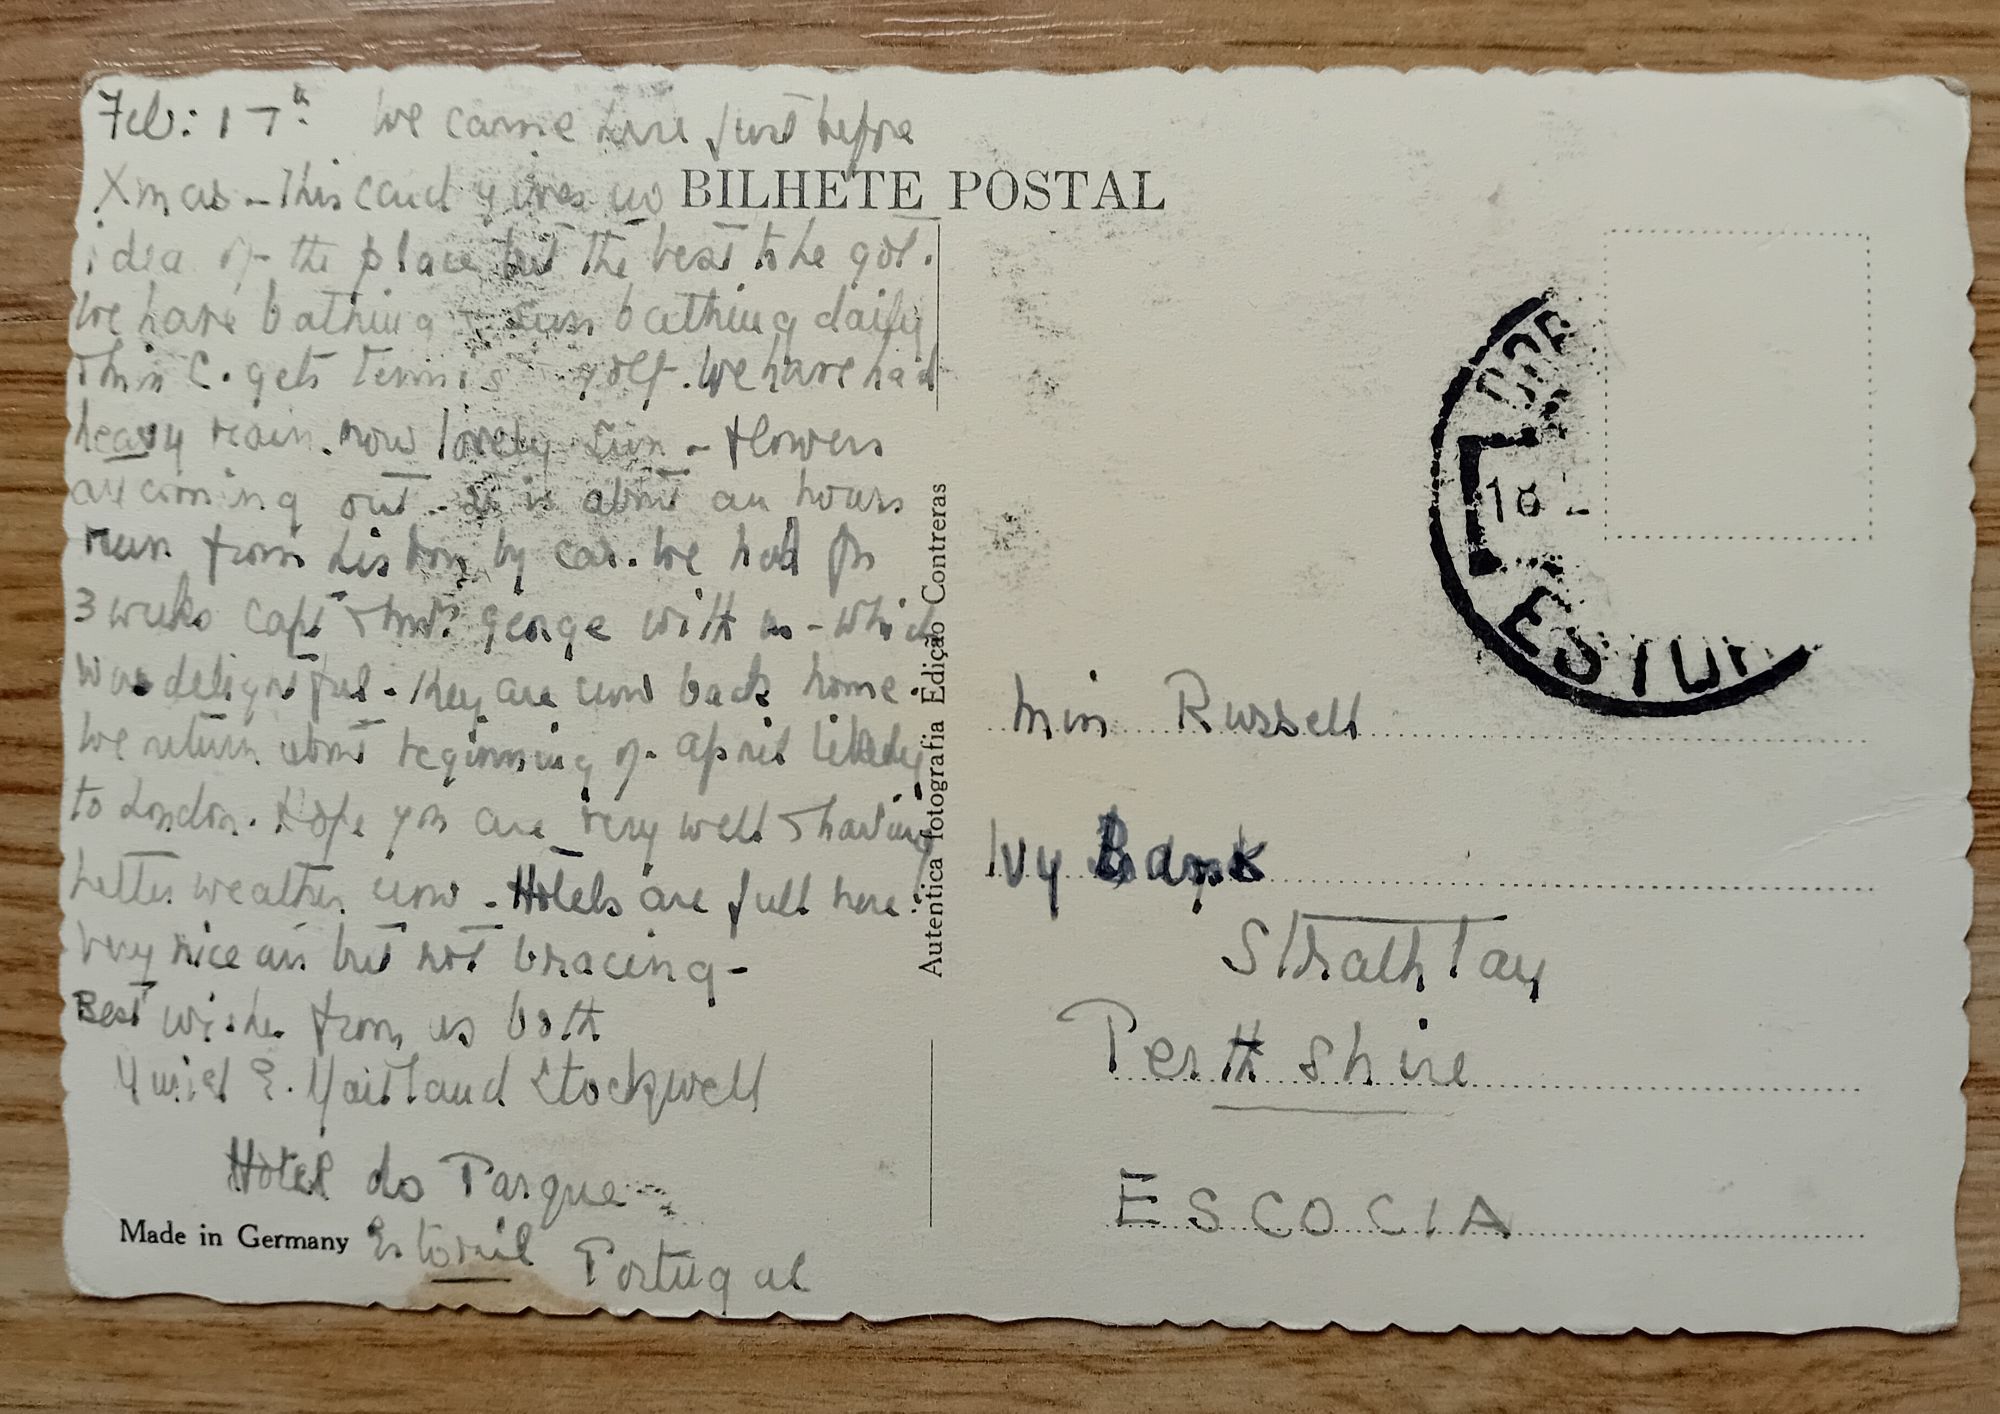 Feb: 17th We came here just before
Xmas - This card gives no
idea of the place but the best to be got.
We have bathing & sun bathing daily
Miss C. gets tennis golf. We have had
heavy rain. now lovely sun - flowers
are coming out - It is about an hours
run from Lisbon by car. We had for
3 weeks Capt & Mrs George with us - which
was delightful - They are now back home.
We return about beginning of April likely
to London. Hope you are very well & having
better weather now - Hotels are full here.
Very nice air but not bracing -
Best wishes from us both
Muriel E. Maitland Stockwell
Hotel do Parque
Estoril Portugal
Made in Germany
BILHETE POSTAL
Autentica fotografia Edição Contreras
COR
18
ESTOR
Miss Russell
Ivy Bank
Strathtay
Perthshire
ESCOCIA